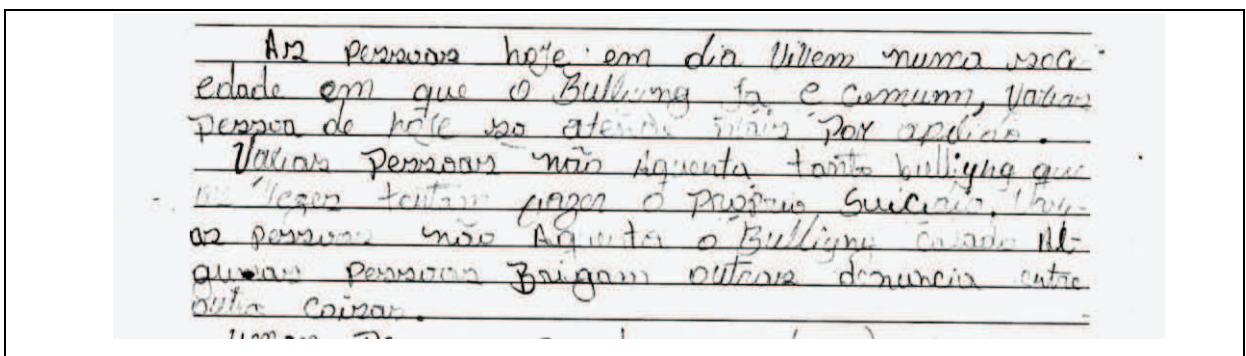 As pessoas hoje em dia Vivem numa soci-
edade em que o Bulliyng Ja e Comum, Varias
pessoa de hoje so atende mais Por apelido.
Varias Pessoas não Aguenta tanto bulliyng que
as vezes tentam fazer o Proprio Suicidio,
as pessoas não Aguenta o Bulligny Al-
gumas pessoas Brigam outras denuncia entre
outra Coisas.